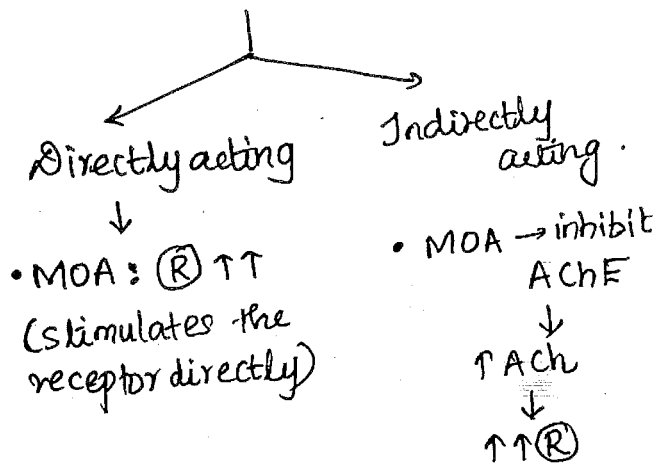 Directly acting
↓
• MOA : Ⓡ ↑↑
(stimulates the
receptor directly)
Indirectly
acting.
• MOA → inhibit
AChE
↓
↑ ACh
↓
↑↑ Ⓡ